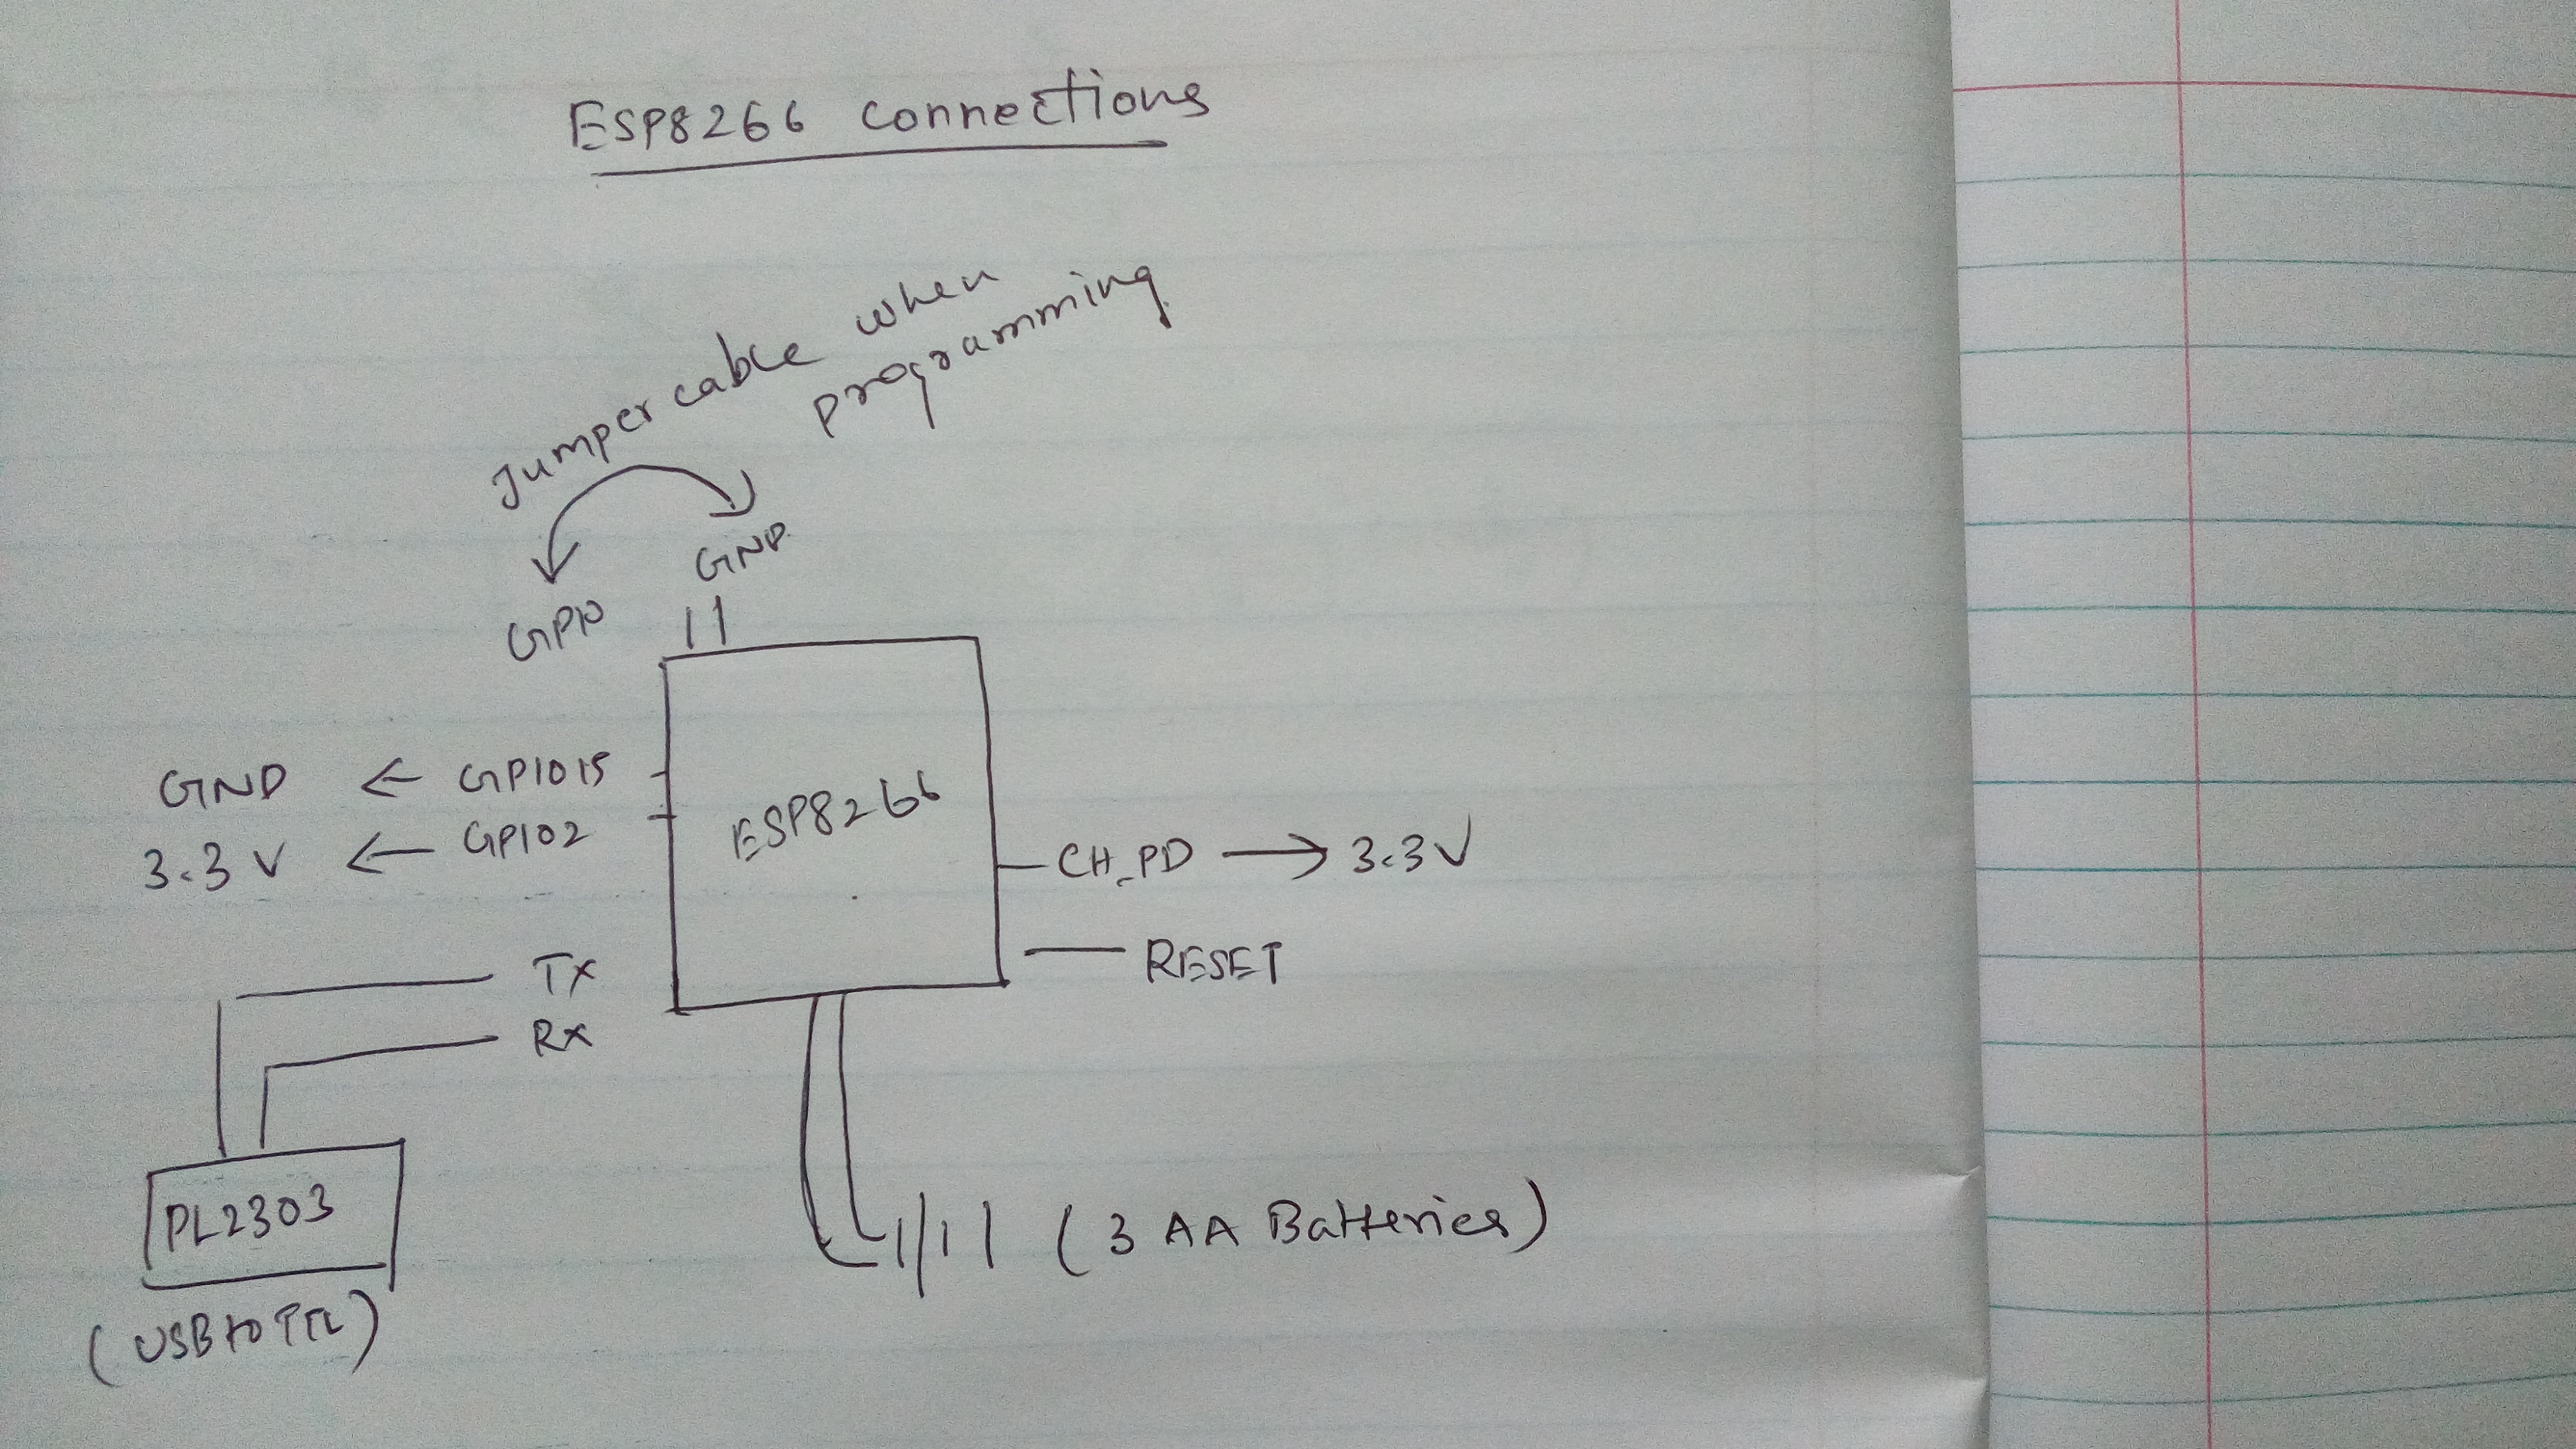 ESP8266 connections
Jumper cable when
programming
GND
GPIO
GND ← GPIO15
3.3 V ← GPIO2
ESP8266
CH_PD → 3.3V
RESET
TX
RX
PL2303
(USB to TTL)
(3 AA Batteries)